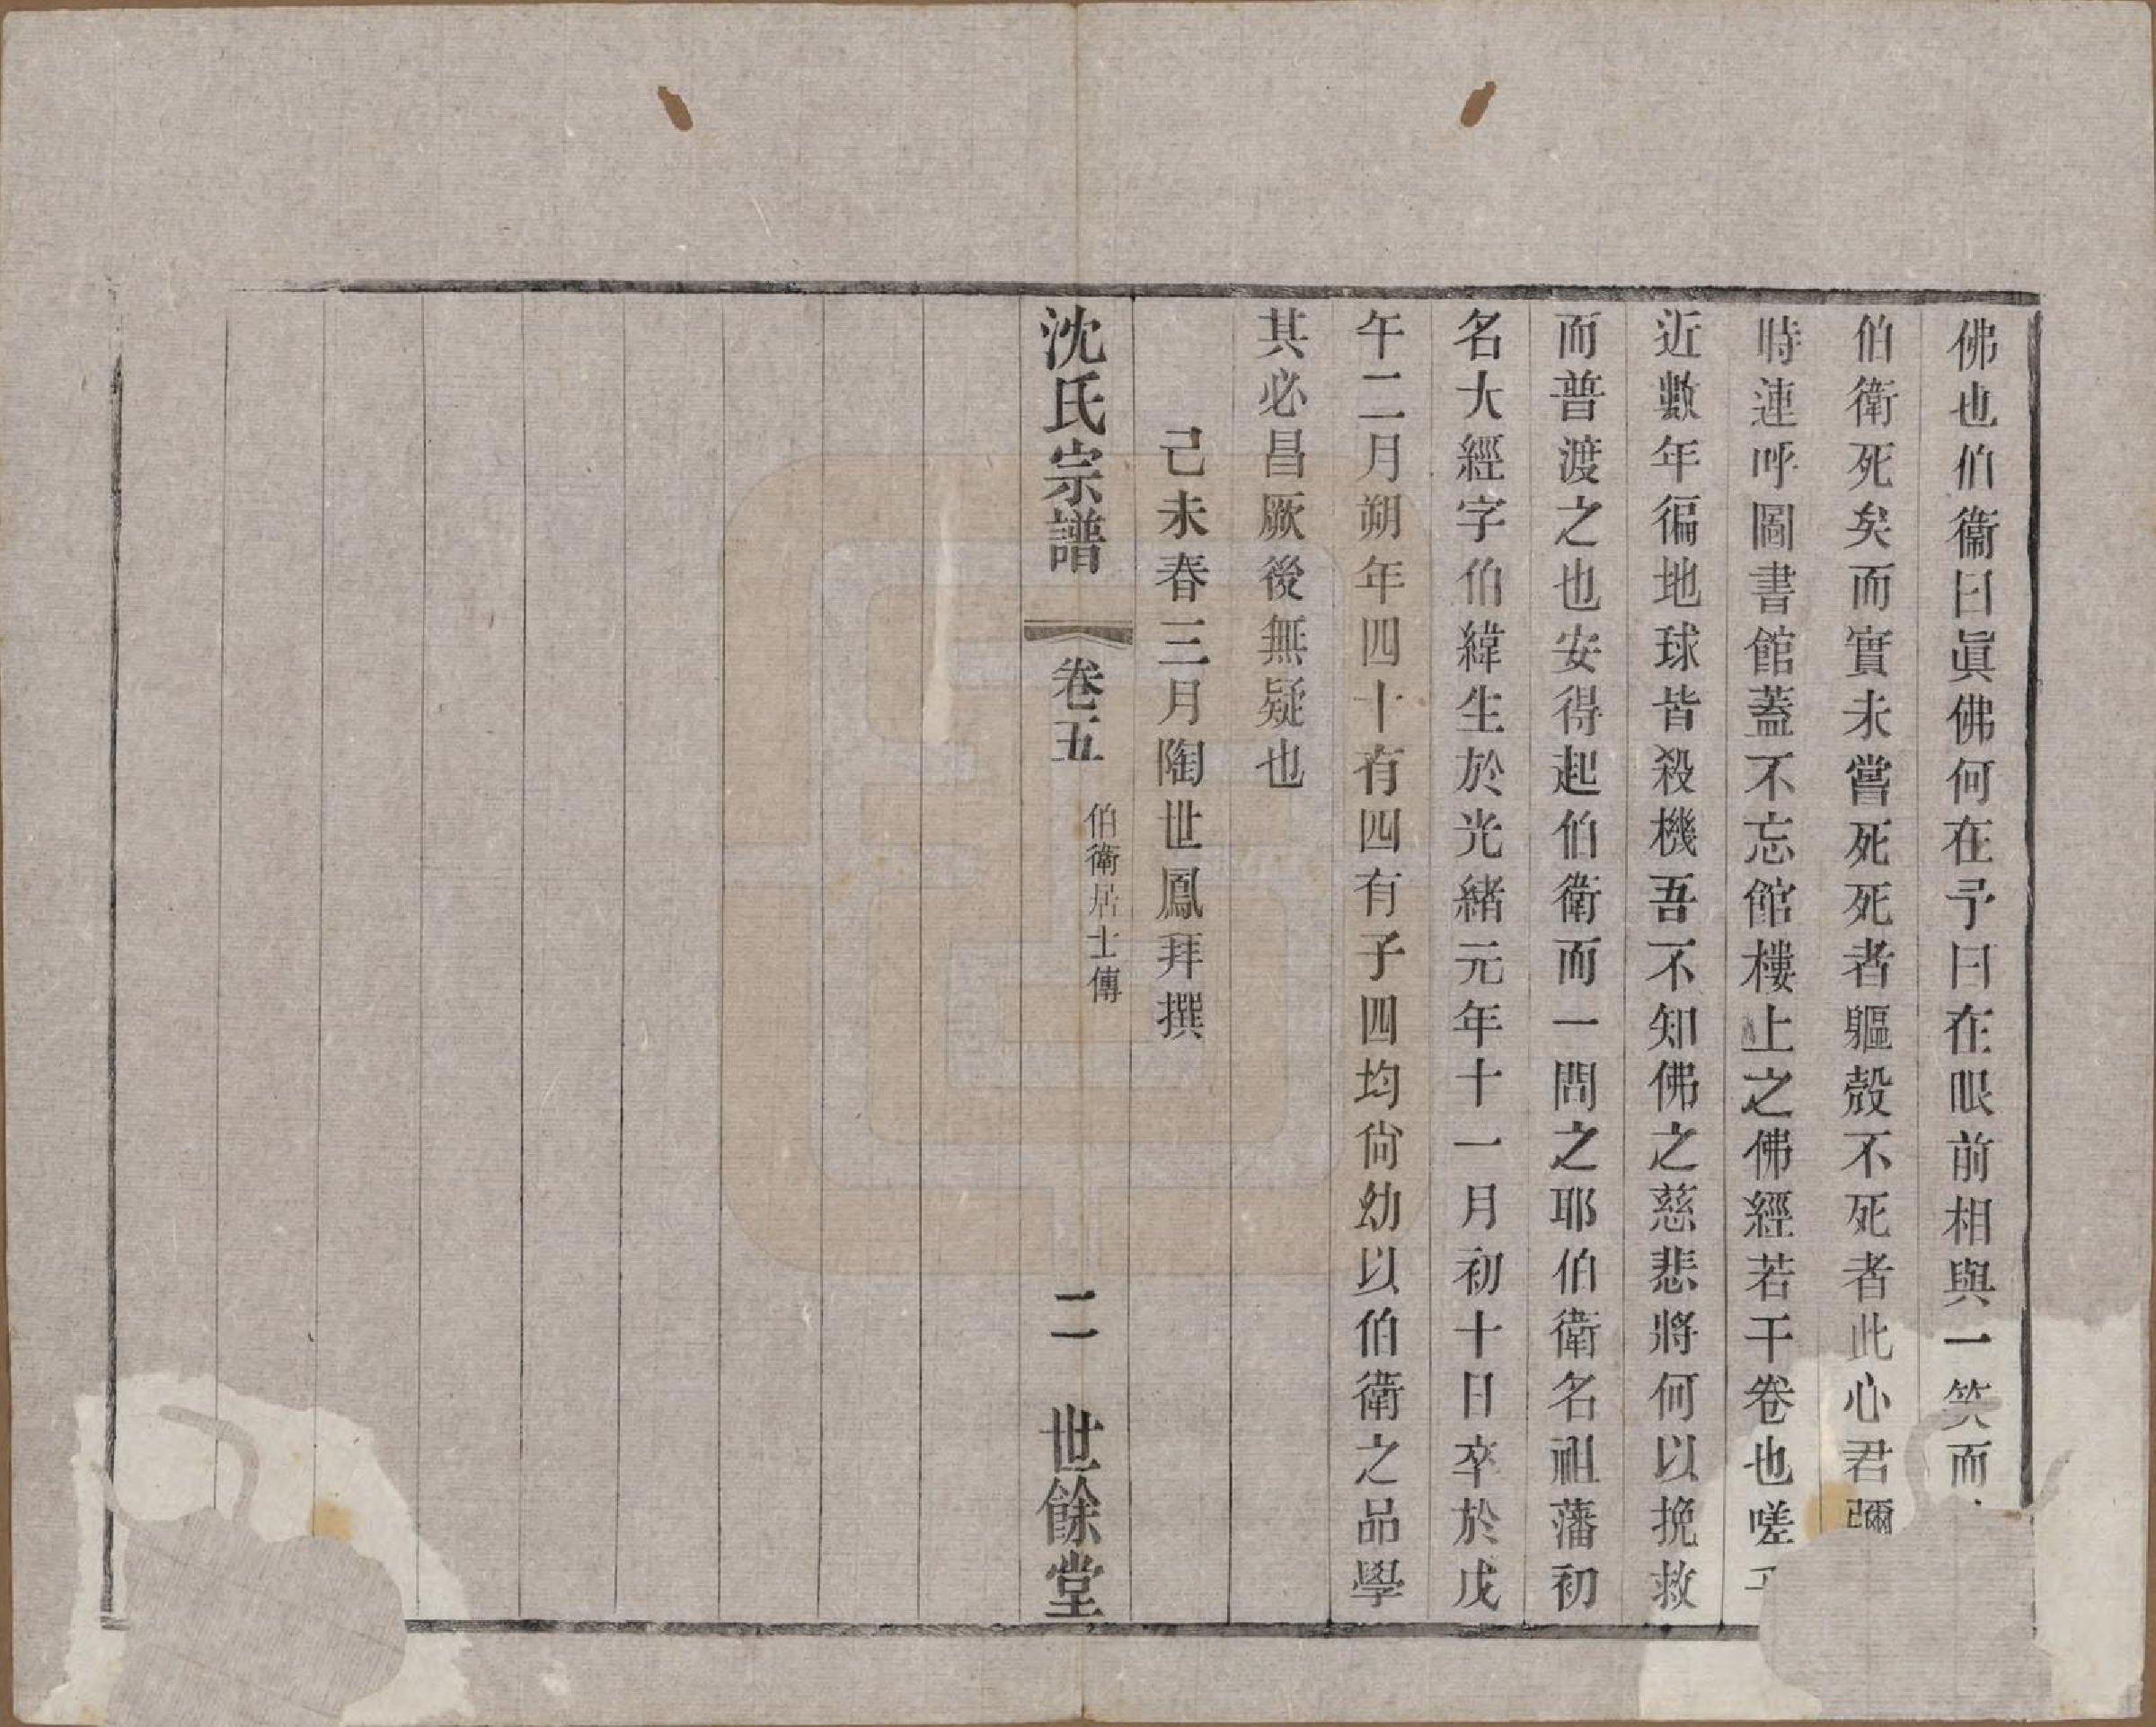 佛也伯衞曰眞佛何在予曰在眼前相與一笑而
伯衛死矣而實未嘗死死者軀殼不死者此心君彌
時連呼圖書館蓋不忘館樓上之佛經若干卷也嗟
近數年徧地球皆殺機吾不知佛之慈悲將何以挽救
而普渡之也安得起伯衛而一問之耶伯衛名祖藩初
名大經字伯緯生於光緒元年十一月初十日卒於戊
午二月朔年四十有四有子四均尙幼以伯衛之品學
其必昌厥後無疑也
己未春三月陶世鳳拜撰
沈氏宗譜 卷五 伯衛居士傳 二 世餘堂